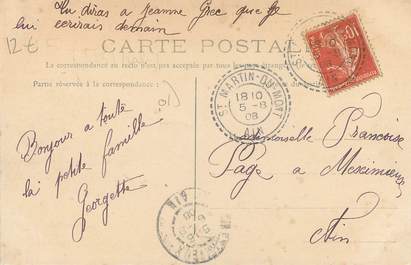 Tu diras a Jeanne Grec que je
lui ecrirais demain
12 €
CARTE POSTALE
La correspondance au recto n'est pas acceptée par tous les pays étrangers
Partie réservée à la correspondance
Bonjour a toute
la petite famille
Georgette
ST MARTIN-DU-MONT
18 10
5 - 8
08
AIN
10
Mademoiselle Francoise
Page a Meximieux
Ain
AIN